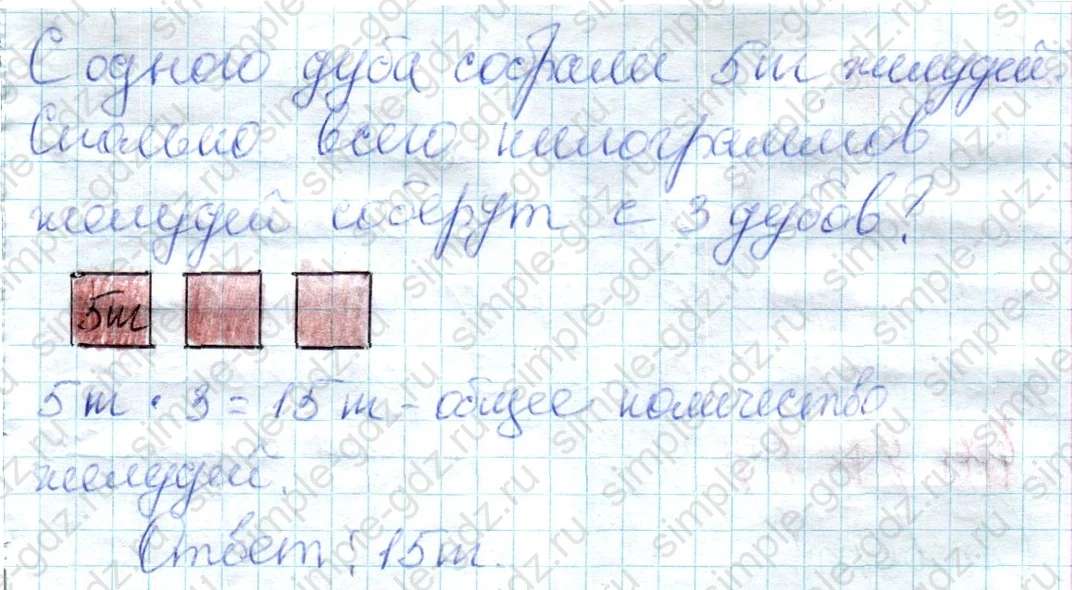 С одного дуба собрали 5т желудей
Сколько всего килограммов
желудей соберут с 3 дубов?
5т
5т · 3 = 15т - общее количество
желудей.
Ответ: 15т.
simple-gdz.ru